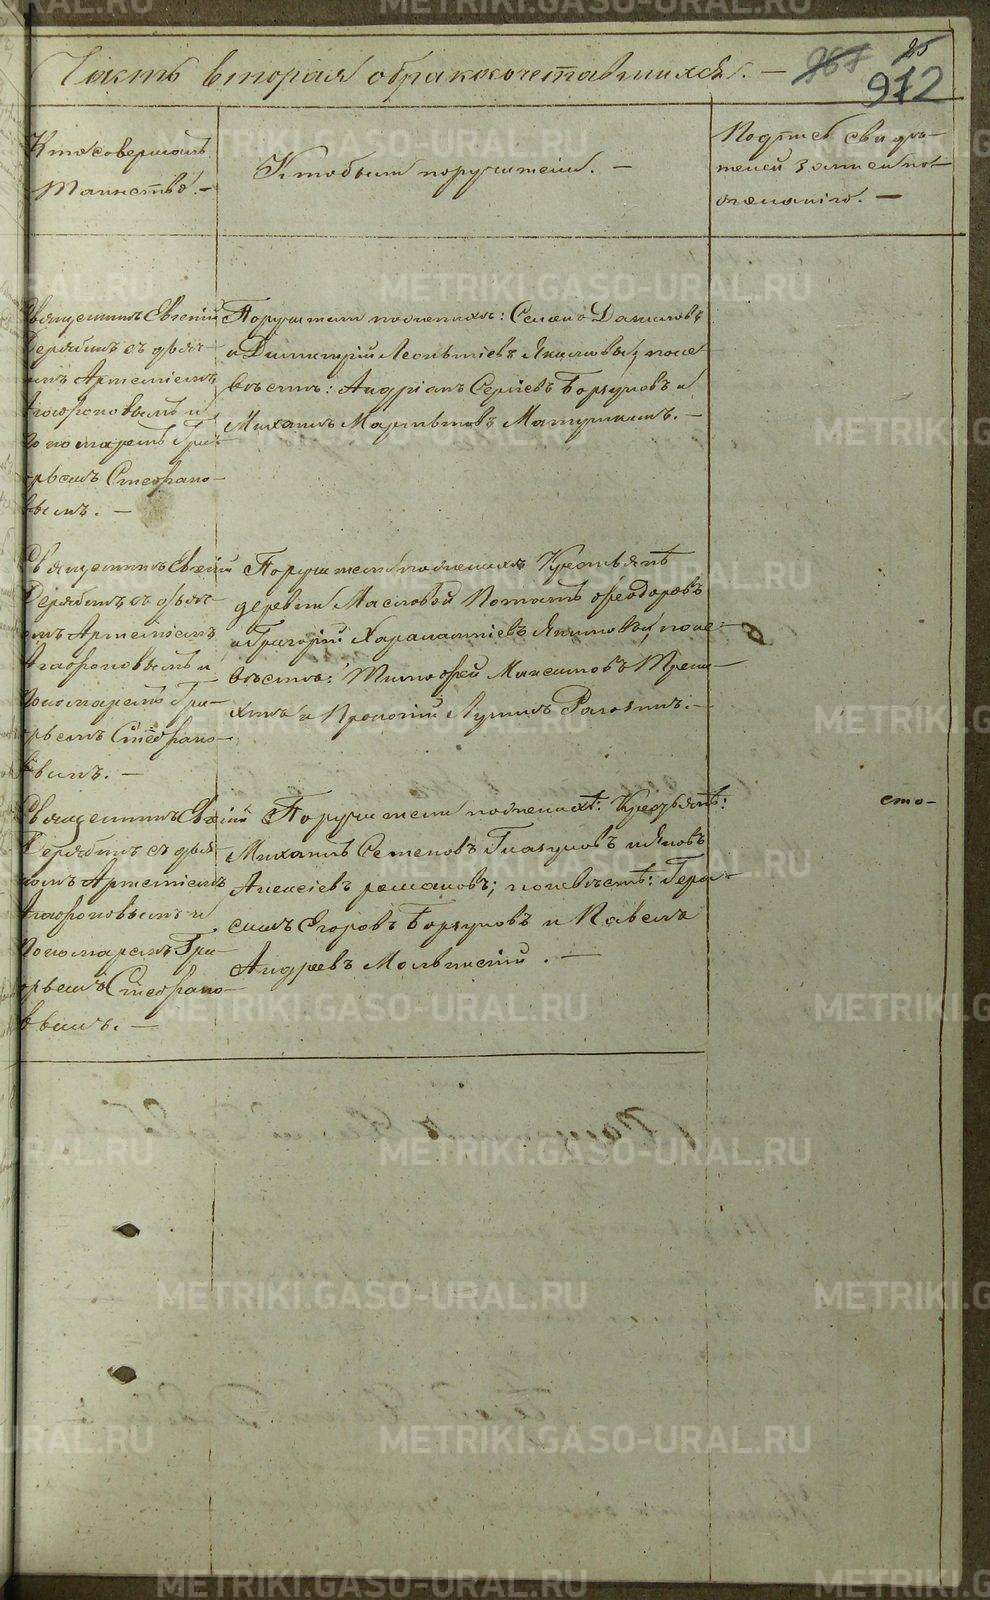 Часть вторая о бракосочетавшихся. —
267 25
972
Кто совершалъ
Таинство. —
Кто были поручители. —
Подпись свидѣ-
телей записи по
желанію. —
Священникъ Евгеній
Дерябинъ съ дьяч-
комъ Артеміемъ
Агафоновымъ и
пономаремъ Гри-
горьемъ Стефано-
вымъ. —
Поручители по женихѣ: Семенъ Даниловъ
и Димитрій Леонтіевъ Якимовы; по не-
вѣстѣ: Андріанъ Сергіевъ Борзуновъ и
Михаилъ Мартыновъ
Священникъ Евгеній
Дерябинъ съ дьяч-
комъ Артеміемъ
Агафоновымъ и
пономаремъ Гри-
горьемъ Стефано-
вымъ. —
Поручители по женихѣ Крестьяне
деревни Масловой Потапъ Феодоровъ
и Григорій Харлампіевъ Якимовы, по не-
вѣстѣ: Тимофей Максимовъ
и Прокопій Лукинъ Рагозинъ. —
Священникъ Евгеній
Дерябинъ съ дьяч-
комъ Артеміемъ
Агафоновымъ и
пономаремъ Гри-
горьемъ Стефано-
вымъ. —
Поручители по женихѣ: Крестьяне:
Михаилъ Семеновъ Глазуновъ и Яковъ
Алексіевъ Романовъ; по невѣстѣ: Гера-
симъ Егоровъ Борзуновъ и Павелъ
Андреевъ . —
сто-
METRIKI.GASO-URAL.RU